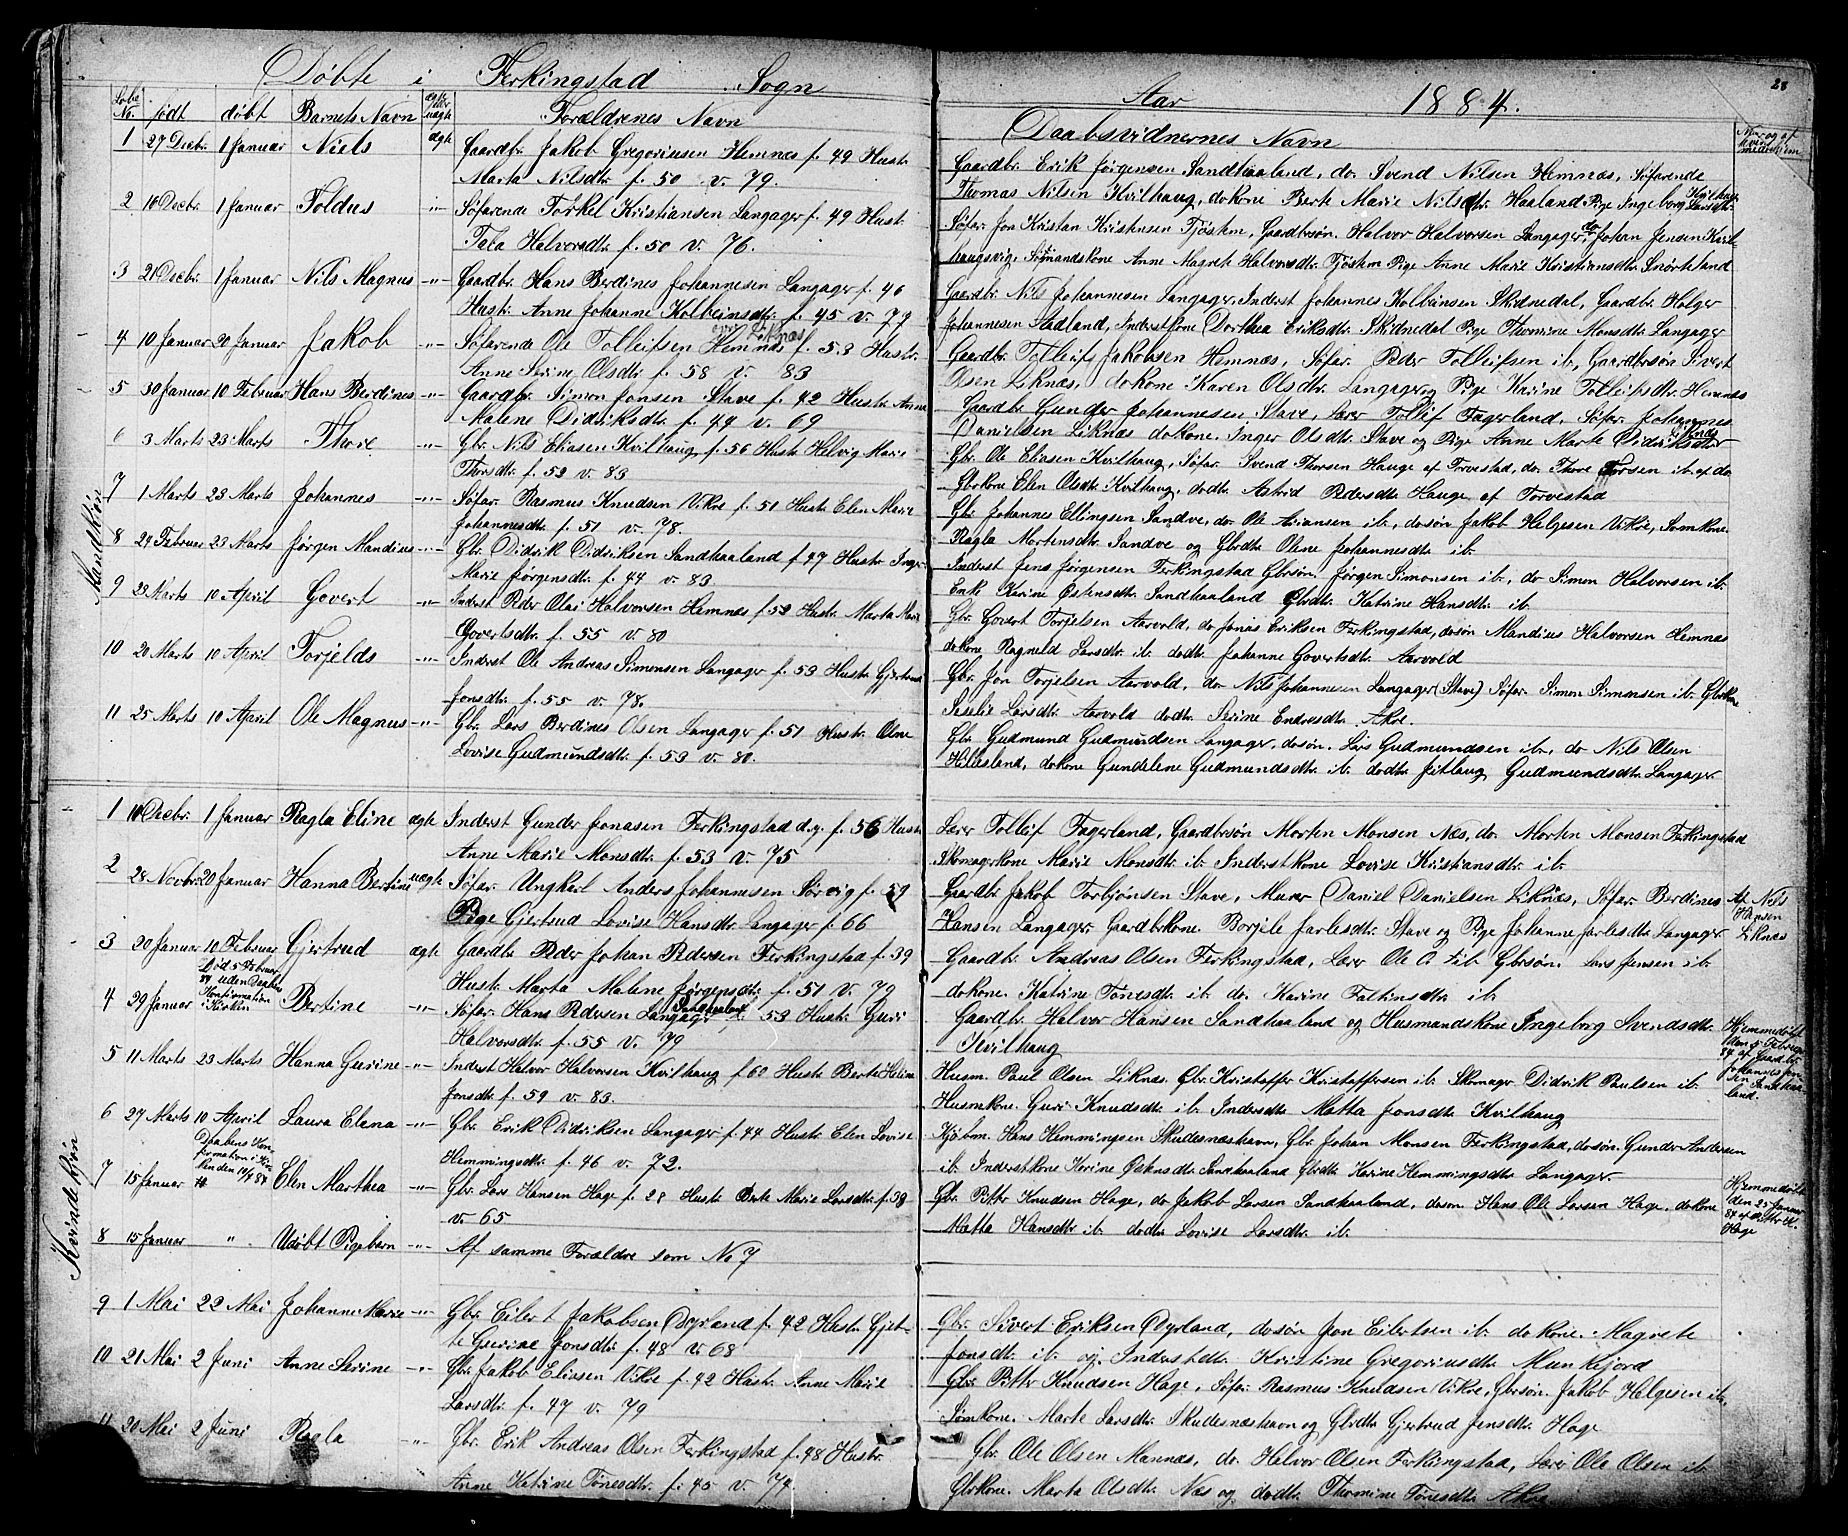 Døbte i Ferkingstad Sogn
Løbe No. født døbt Barnets Navn ægte eller uægte Forældrenes Navn
Mandkjøn
1 27 Decbr. 1 Januar Niels ægte Gaardbr. Jakob Gregoriusen Hemnes f. 49 Hustr.
Marta Nilsdtr. f. 50 v. 79.
2 16 Decbr. 1 Januar Toldus -"- Søfarende Torkel Kristiansen Langager f. 49 Hustr.
Tala Halvorsdtr. f. 50 v. 76.
3 21 Decbr. 1 Januar Nils Magnus -"- Gaardbr. Hans Berdines Johannesen Langager f. 46
Hustr. Anne Johanne Kolbeinsdtr. f. 45 v. 79
4 10 Januar 20 Januar Jakob -"- Søfarende Ole Tolleifsen Hemnæs Liknæs f. 53 Hustr.
Anne Serine Olsdtr. f. 58 v. 83
5 30 Januar 10 Februar Hans Berdines -"- Gaardbr. Simon Jonsen Stave f. 42 Hustr. Anne
Malene Didriksdtr. f. 44 v. 69
6 3 Marts 23 Marts Thore -"- Gbr. Nils Eliasen Kvilhaug f. 56 Hustr. Helvig Marie
Thorsdtr. f. 52 v. 83
7 1 Marts 23 Marts Johannes -"- Søfar. Rasmus Knudsen Vikre f. 51 Hustr. Elen Marie
Johannesdtr. f. 51 v. 78.
8 24 Februar 23 Marts Jørgen Mandius -"- Gbr. Didrik Didriksen Sandhaaland f. 47 Hustr. Inger
Marie Jørgensdtr. f. 44 v. 83.
9 23 Marts 10 April Govert -"- Inderst Peder Olai Halvorsen Hemnæs f. 52 Hustr. Marta Marie
Govertsdtr. f. 55 v. 80
10 20 Marts 10 April Torjelds -"- Inderst Ole Andreas Simensen Langager f. 53 Hustr. Gjertrud
Jonsdtr. f. 55 v. 78.
11 25 Marts 10 April Ole Magnus -"- Gbr. Lars Berdines Olsen Langager f. 51 Hustr. Oline
Lovise Gudmundsdtr. f. 53 v. 80.
Kvindekjøn
1 10 Decbr. 1 Januar Ragla Eline ægte Inderst Gunder Jonasen Ferkingstad d.y. f. 56 Hustr.
Anne Marie Monsdtr. f. 53 v. 75
2 28 Novbr. 20 Januar Hanna Bertine uægte Søfar. Ungkarl Anders Johannesen Sørvig f. 59
Pige Gjertrud Lovise Hansdtr. Langager f. 66
3 20 Januar 10 Februar Gjertrud ægte Gaardbr. Peder Johan Pedersen Ferkingstad f. 39
Hustr. Marta Malene Jørgensdtr. f. 51 v. 79
4 29 Januar Død 5 Februar 84 uden Daabens Konfirmation i Kirken Bertine -"- Søfar. Hans Pedersen Langager Sandhaaland f. 53 Hustr. Guri
Halvorsdtr. f. 55 v. 79
5 11 Marts 23 Marts Hanna Gurine -"- Inderst Halvor Halvorsen Kvilhaug f. 60 Hustr. Berte Helene
Jonsdtr. f. 59 v. 83.
6 27 Marts 10 April Laura Elena -"- Gbr. Erik Didriksen Langager f. 44 Hustr. Elen Lovise
Hemmingsdtr. f. 46 v. 72.
7 15 Januar Daabens Konfirmation i Kirken den 10/4 84 Elen Marthea -"- Gbr. Lars Hansen Hage f. 28 Hustr. Berte Marie Larsdtr. f. 39
v. 65
8 15 Januar " Udøbt Pigebarn -"- Af samme Forældre som No 7
9 1 Mai 22 Mai Johanne Marie -"- Gbr. Eilert Jakobsen Dyrland f. 42 Hustr. Gjet-
te Gurine Jonsdtr. f. 48 v. 68
10 21 Mai 2 Juni Anne Serine -"- Gbr. Jakob Eliasen Vikre f. 42 Hustr. Anne Marie
Larsdtr. f. 47 v. 79
11 20 Mai 2 Juni Ragla -"- Gbr. Erik Andreas Olsen Ferkingstad f. 48 Hustr.
Anne Katrine Tønesdtr. f. 45 v. 74.
28
Aar 1884.
Daabsvidnernes Navn
Naar og af hvem hjemmedøbt
Gaardbr. Erik Jørgensen Sandhaaland, do. Svend Nilsen Hemnæs, Søfarende
Thomas Nilsen Kvilhaug, do kone Berte Marie Nilsdtr. Haaland Pige Ingeborg Larsdtr. Kvilhaug
Søfar. Jon Kristian Kristensen Tjøstem, Gaardbrsøn. Halvor Halvorsen Langager, do Johan Jensen Kvil-
haugsvig, Sømandskone Anne Magrete Halvorsdtr. Tjøstem Pige Anne Marie Kristiansdtr. Snørteland
Gaardbr. Nils Johannesen Langager, Inderst Johannes Kolbeinsen Skidnedal, Gaardbr. Holger
Johannesen Stadland, Inderstkone Dorthea Eriksdtr. Skidnedal Pige Thomine Monsdtr. Langager
Gaardbr. Tolleif Jakobsen Hemnæs, Søfar. Peder Tolleifsen ib, Gaardbrsøn Sivert
Olsen Liknæs, do kone Karen Olsdtr. Langager og Pige Karine Tolleifsdtr. Hemnæs
Gaardbr. Gunder Johannesen Stave, Lærer Tollif Fagerland, Søfar. Johannes
Danielsen Liknæs do kone. Inger Olsdtr. Stave og Pige Anne Marte Didriksdtr. Liknæs
Gbr. Ole Eliasen Kvilhaug, Søfar. Svend Thorsen Hauge af Torvestad, do. Thore Torsen ib. af do
Gbrkone Elen Olsdtr. Kvilhaug, do dtr. Astrid Pedersdtr. Hauge af Torvestad
Gbr. Johannes Ellingsen Sandve, do. Ole Ariansen ib., do søn Jakob Helgesen Vikre, Sømkone.
Ragla Mortensdtr. Sandve og Gbrdtr. Oline Johannesdtr. ib.
Inderst Jens Jørgensen Ferkingstad Gbrsøn. Jørgen Simonsen ib., do Simon Halvorsen ib.
Enke Karine Østensdtr. Sandhaaland Gbrdtr. Katrine Hansdtr. ib.
Gbr. Govert Torjelsen Aarvold, do Jonas Eriksen Ferkingstad, do søn Mandius Halvorsen Hemnæs
do kone Ragneld Larsdtr. ib. do dtr. Johanne Govertsdtr. Aarvold
Gbr. Jon Torjelsen Aarvold, do Nils Johannesen Langager (Stave) Søfar. Simon Simonsen ib. Gbrkone
Seselie Larsdtr. Aarvold do dtr. Serine Endresdtr. Akre.
Gbr. Gudmund Gudmundsen Langager, do søn. Lars Gudmundsen ib., do Nils Olsen
Hillesland, do kone Gundeline Gudmundsdtr. ib. do dtr. Jitlaug Gudmundsdtr. Langager
Lærer Tolleif Fagerland, Gaardbrsøn Morten Monsen Næs, do. Morten Monsen Ferkingstad
Skomagerkone Marie Monsdtr. ib. Inderstkone Lovise Kristiansdtr. ib.
Gaardbr. Jakob Torbjønsen Stave, Murer Daniel Danielsen Liknæs, Søfar. Berdines
Hansen Langager, Gaardbrkone. Borjile Jarlesdtr. Stave og Pige Johanne Jarlesdtr. Langager
Af Nils Hansen Liknæs
Gaardbr. Andreas Olsen Ferkingstad, Lærer Ole O. ib. Gbrsøn. Lars Jensen ib.
do kone. Katrine Tønesdtr. ib. do. Karine Faltinsdtr. ib.
Gaardbr. Halvor Hansen Sandhaaland og Husmandskone Ingeborg Svendsdtr.
Kvilhaug
Hjemmedøbt den 5 Februar 84 af Gaardbr. Johannes Jonsen Sandhaaland.
Husm. Paul Olsen Liknæs. Gbr. Kristoffer Kristoffersen ib. Skomager Didrik Paulsen ib.
Husmkone. Guri Knudsdtr. ib. Inderdtr. Matta Jonsdtr. Kvilhaug
Kjøbm. Hans Hemmingsen Skudesnæshavn, Gbr. Johan Monsen Ferkingstad, do søn. Gunder Andersen
ib. Inderstkone Karine Østensdtr. Sandhaaland Gbrdtr. Karine Hemmingsdtr. Langager.
Gbr. Petter Knudsen Hage, do Jakob Larsen Sandhaaland, do søn Hans Ole Larsen Hage, do kone
Matta Hansdtr. ib. do dtr. Lovise Larsdtr. ib.
Hjemmedøbt den 25 Januar 84 af Petter K. Hage
Gbr. Sivert Eriksen Dyrland, do søn Jon Eilertsen ib. do kone. Magrete
Jonsdtr. ib. og. Inderstdtr. Kristine Gregoriusdtr. Munkejord
Gbr. Petter Knudsen Hage, Søfar. Rasmus Knudsen Vikre, Gbrsøn. Jakob Helgesen ib.,
Sømkone. Marte Larsdtr. Skudesnæshavn og Gbrdtr. Gjertrud Jensdtr. Hage
Gbr. Ole Olsen Mannæs, do. Halvor Olsen Ferkingstad, Lærer Ole Olsen ib.
Gbrkone. Marta Olsdtr. Næs og do dtr. Thomine Tønesdtr. Akre